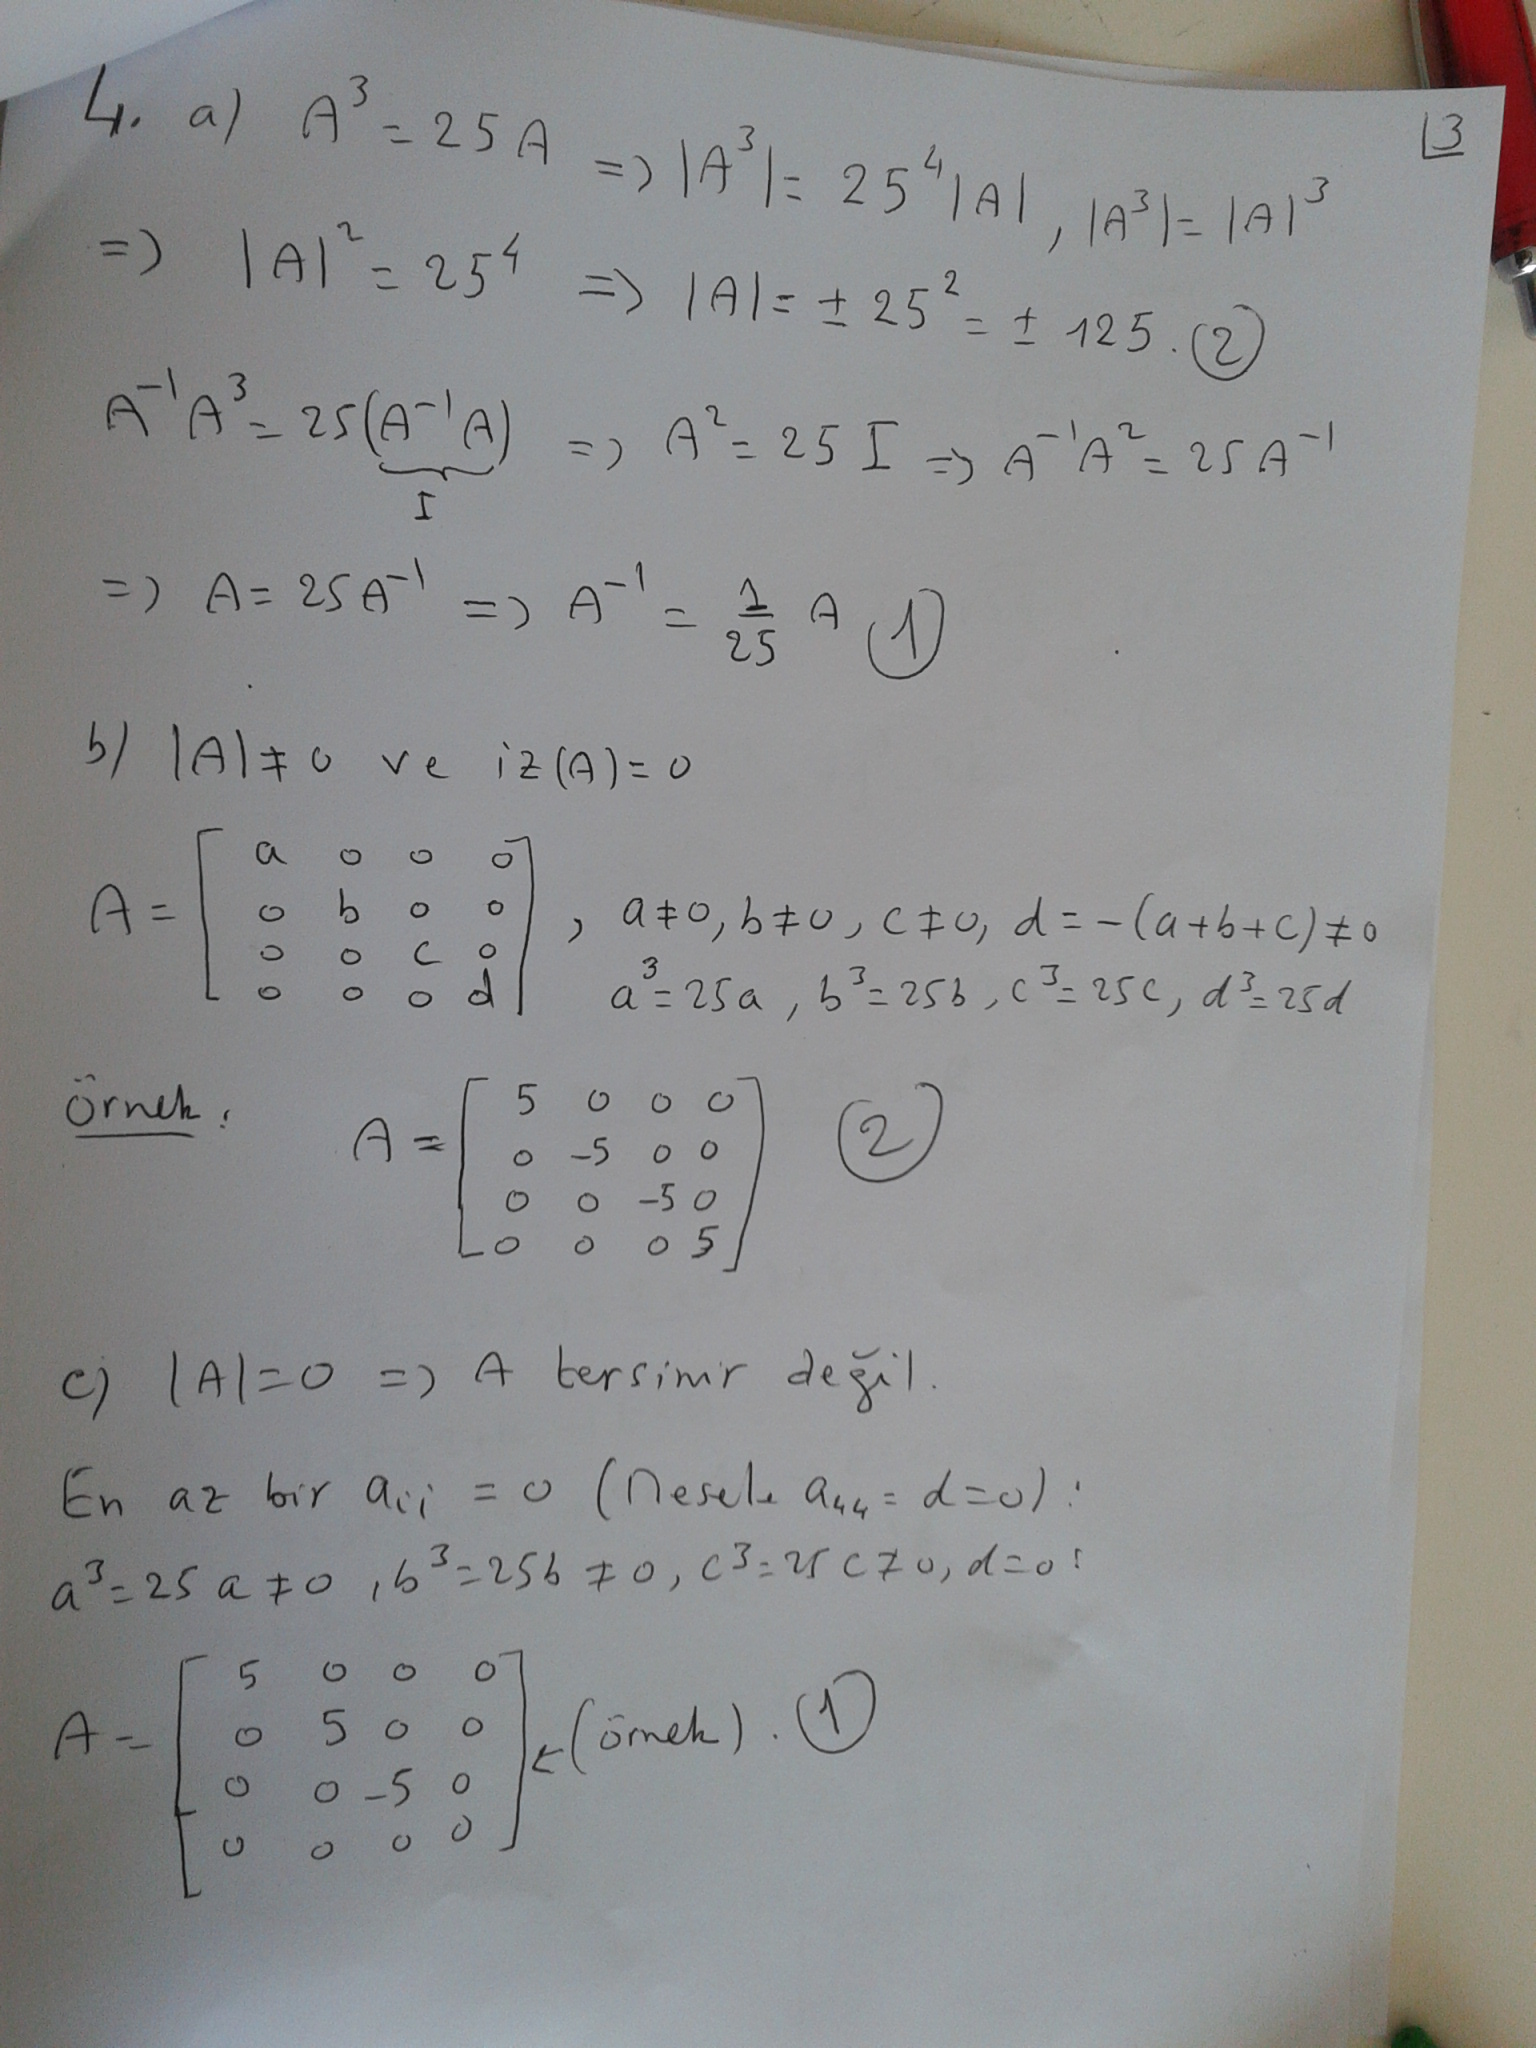 3
4. a) A³ = 25A => |A³| = 25⁴|A|, |A³| = |A|³
=> |A|² = 25⁴ => |A| = ± 25² = ± 125. (2)
A⁻¹A³ = 25(A⁻¹A) => A² = 25 I => A⁻¹A² = 25A⁻¹
I
=> A = 25A⁻¹ => A⁻¹ = 1/25 A (1)
b) |A| ≠ 0 ve iz(A) = 0
A = [ a 0 0 0
0 b 0 0
0 0 c 0
0 0 0 d ] , a≠0, b≠0, c≠0, d = -(a+b+c) ≠ 0
a³ = 25a, b³ = 25b, c³ = 25c, d³ = 25d
Örnek: A = [ 5 0 0 0
0 -5 0 0
0 0 -5 0
0 0 0 5 ] (2)
c) |A| = 0 => A tersinir değil.
En az bir aᵢᵢ = 0 (Mesela a₄₄ = d = 0) :
a³ = 25a ≠ 0, b³ = 25b ≠ 0, c³ = 25c ≠ 0, d = 0 :
A = [ 5 0 0 0
0 5 0 0
0 0 -5 0
0 0 0 0 ] ← (örnek). (1)